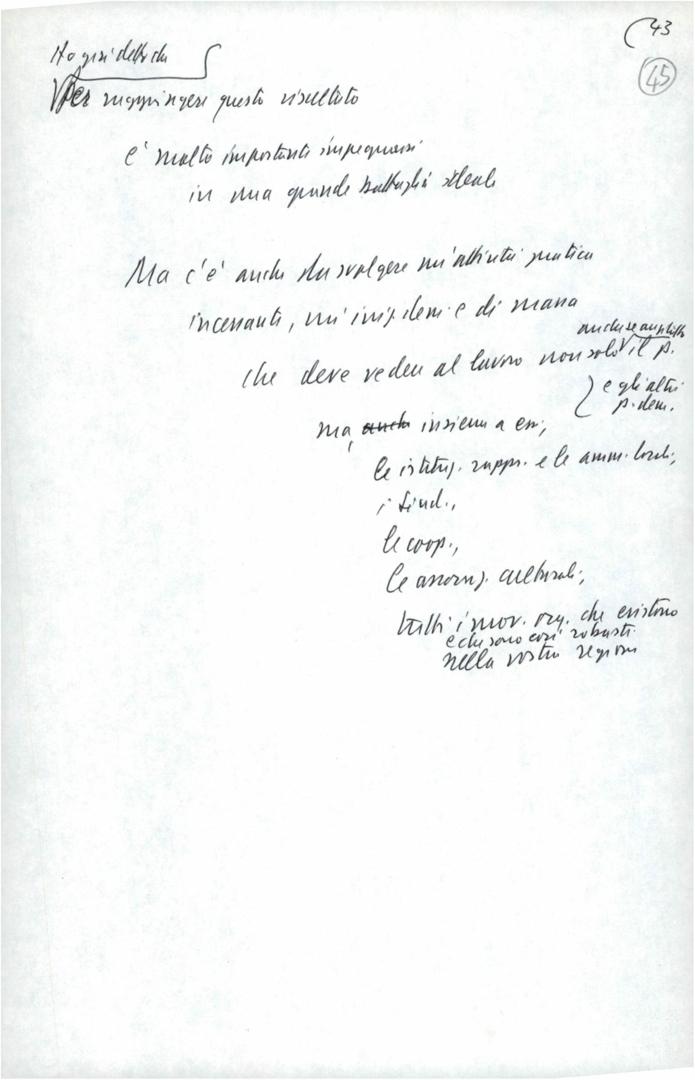 43
45
Ho già detto che
Per raggiungere questo risultato
è molto importante impegnarsi
in una grande battaglia ideale
Ma c'è anche da svolgere un'attività pratica
incessante, un'iniz. dem. e di massa
che deve vedere al lavoro non solo anche se anzitutto il p.
e gli altri
p. dem.
ma, anche insieme a essi,
le istituz. rappr. e le amm. locali,
i sind.,
le coop.,
le associaz. culturali,
tutti i mov. org. che esistono
e che sono così robusti
nella vostra regione